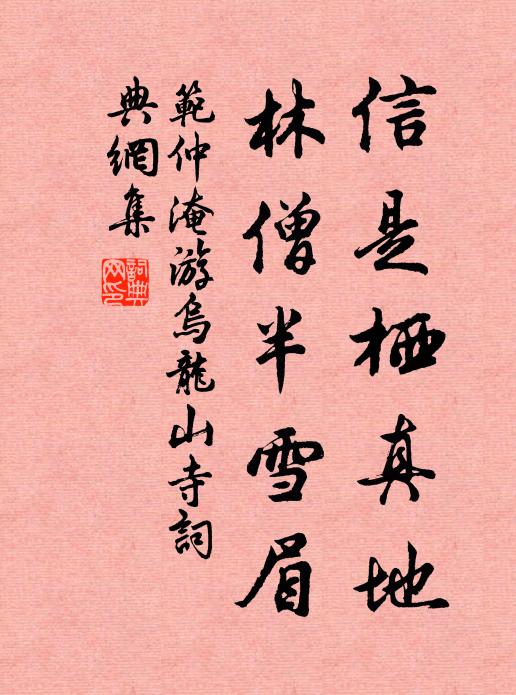 信是栖真地
林僧半雪眉
範仲淹游烏龍山寺詞
典網集
詞典
网印